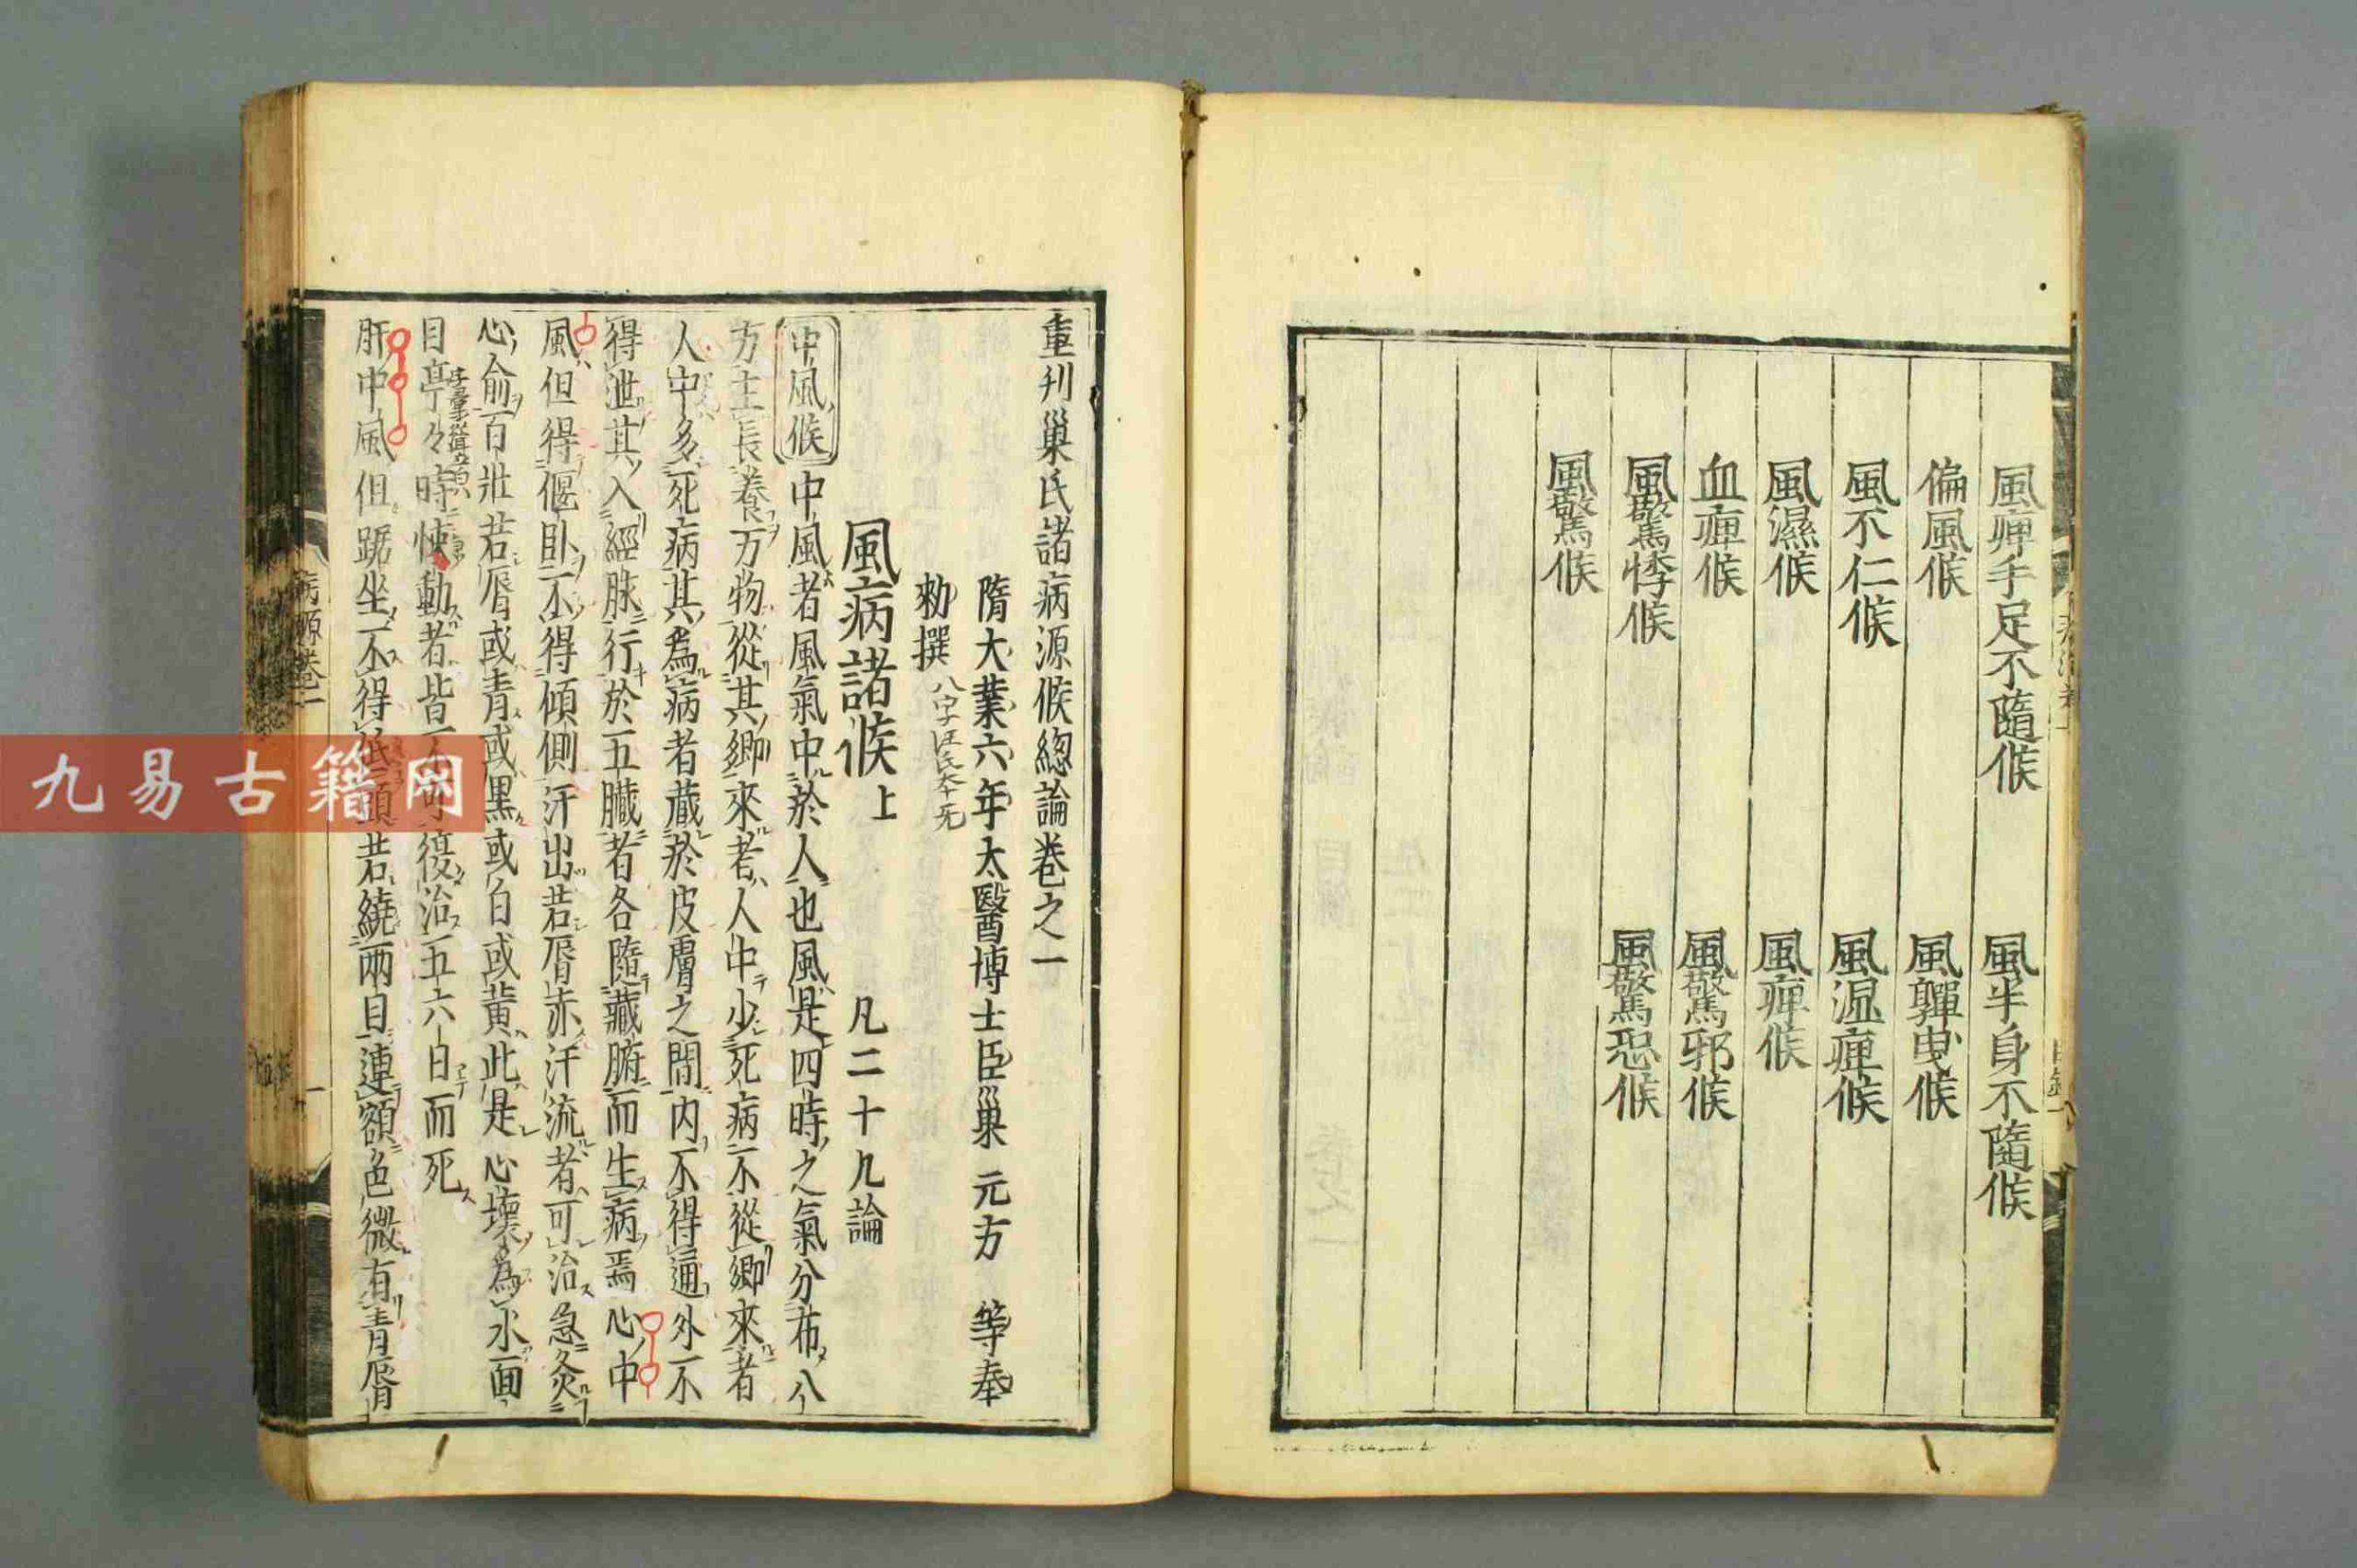 風痺手足不隨候 風半身不隨候
偏風候 風嚲曳候
風不仁候 風濕痺候
風濕候 風痺候
血痺候 風驚邪候
風驚悸候 風驚恐候
風驚候
重刋巢氏諸病源候總論卷之一
隋大業六年太醫博士臣巢元方 等奉
勑撰 八字汪氏本无
風病諸候上 凡二十九論
中風候 中風者風氣中於人也風是四時之氣分布八
方主長養万物從其鄉來者人中少死病不從鄉來者
人中多死病其為病者藏於皮膚之間内不得通外不
得泄其入經脉行於五臓者各隨藏腑而生病焉心中
風但得偃卧不得傾側汗出若唇赤汗流者可治急灸
心俞百壯若唇或青或黒或白或黃此是心壞為水面
目亭々時悚動者皆不可復治五六日而死
肝中風但踞坐不得低頭若繞兩目連額色微有青唇
病源卷一
一
九易古籍网